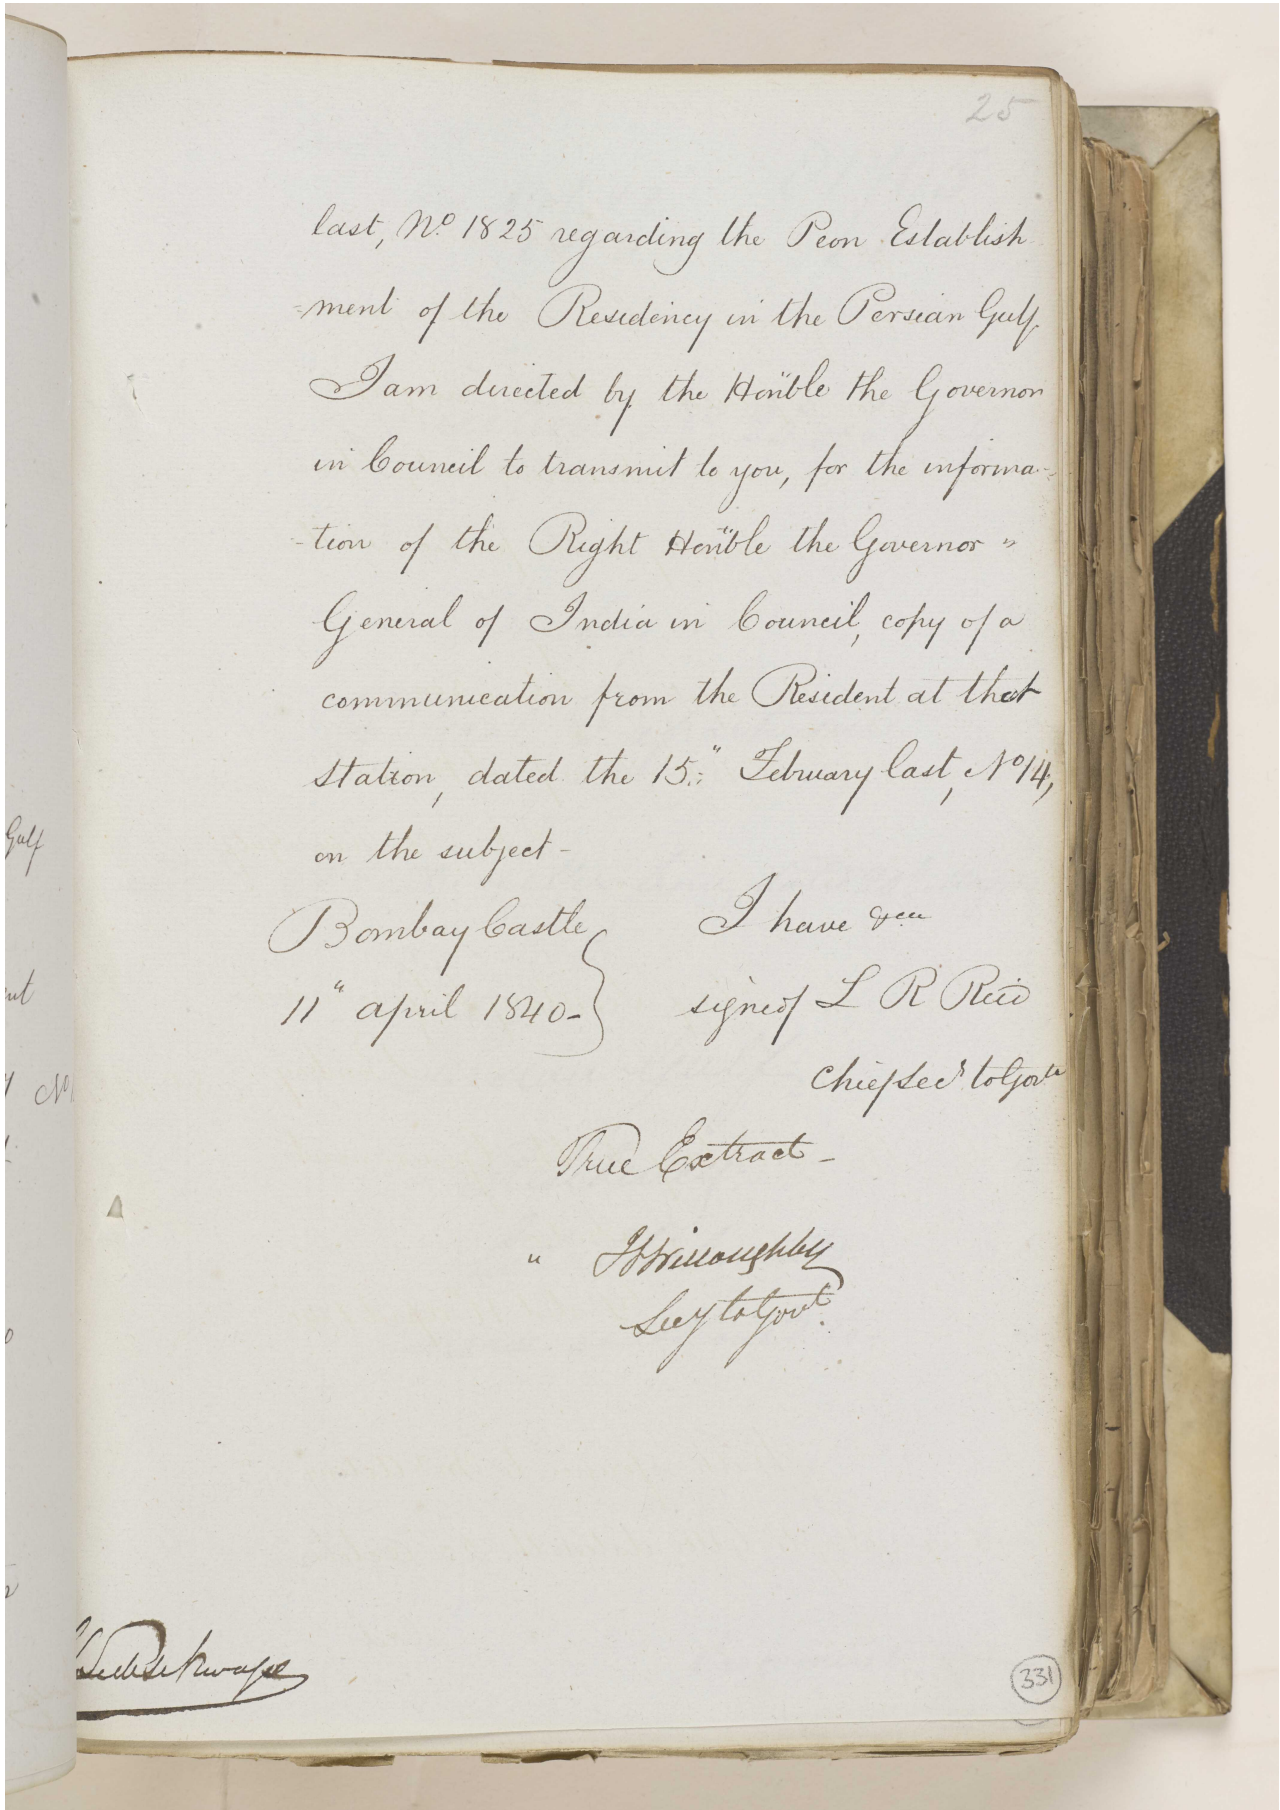 25
last, No. 1825 regarding the Peon Establish
=ment of the Residency in the Persian Gulf
I am directed by the Hon'ble the Governor
in Council to transmit to you, for the informa=
=tion of the Right Hon'ble the Governor "
General of India in Council, copy of a
communication from the Resident at that
station, dated the 15" February last, No 14,
on the subject -
Bombay Castle
11" april 1840-
I have &ca
signed L R Reid
Chief Secy to Govt
True Extract -
" J P Willoughby
Secy to Govt.
331
Gulf
No